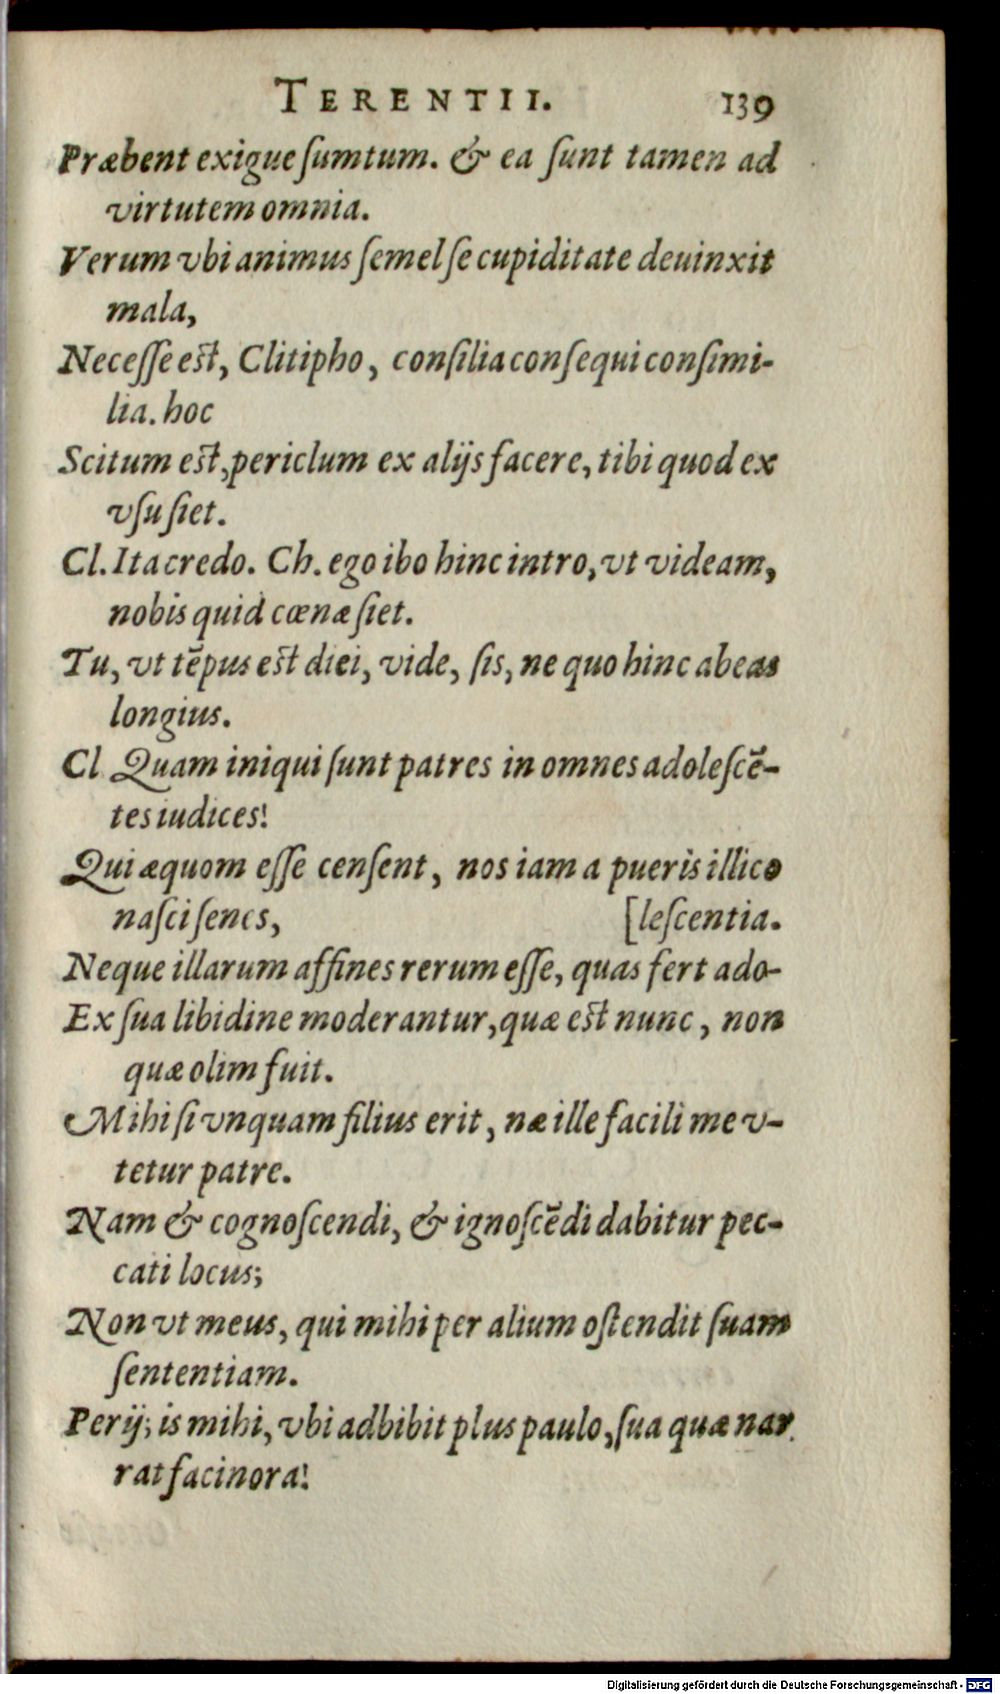 TERENTII. 139
Præbent exigue ſumtum. & ea ſunt tamen ad
virtutem omnia.
Verum vbi animus ſemel ſe cupiditate deuinxit
mala,
Neceſſe est, Clitipho, conſilia conſequi conſimi-
lia. hoc
Scitum est, periclum ex alijs facere, tibi quod ex
vſu ſiet.
Cl. Ita credo. Ch. ego ibo hinc intro, vt videam,
nobis quid cœnæ ſiet.
Tu, vt tẽpus est diei, vide, ſis, ne quo hinc abeas
longius.
Cl Quam iniqui ſunt patres in omnes adoleſcẽ-
tes iudices!
Qui æquom eſſe cenſent, nos iam a pueris illico
naſci ſenes, [leſcentia.
Neque illarum affines rerum eſſe, quas fert ado-
Ex ſua libidine moderantur, quæ est nunc, non
quæ olim fuit.
Mihi ſi vnquam filius erit, næ ille facili me v-
tetur patre.
Nam & cognoſcendi, & ignoſcẽdi dabitur pec-
cati locus;
Non vt meus, qui mihi per alium oſtendit ſuam
ſententiam.
Perij; is mihi, vbi adbibit plus paulo, ſua quæ nar
rat facinora!
Digitalisierung gefördert durch die Deutsche Forschungsgemeinschaft - DFG